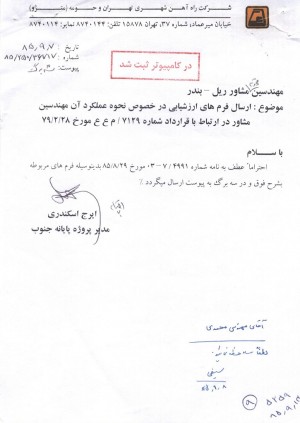 شرکت راه آهن شهری تهران و حومه (مترو)
خیابان میرعماد، شماره ۳۷، تهران ۱۵۸۷۸ تلفن: ۸۷۴۰۱۴۴ نمابر: ۸۷۴۰۱۱۴
تاریخ : ۸۵,۹,۷
شماره :
پیوست:
در کامپیوتر ثبت شد
مهندسین مشاور ریل - بندر
موضوع : ارسال فرم های ارزشیابی در خصوص نحوه عملکرد آن مهندسین
مشاور در ارتباط با قرارداد شماره ۷۱۲۹ / م ع ع مورخ ۷۹/۲/۲۸
با سلام
احتراماً عطف به نامه شماره ۴۹۹۱ / ۷ -۰۳ مورخ ۸۵/۸/۲۹ بدینوسیله فرم های مربوطه
بشرح فوق و در سه برگ به پیوست ارسال میگردد.٪
ایرج اسکندری
مدیر پروژه پایانه جنوب
آقای مهندس محمدی
۸۵,۹,۸
۵۲۵۹